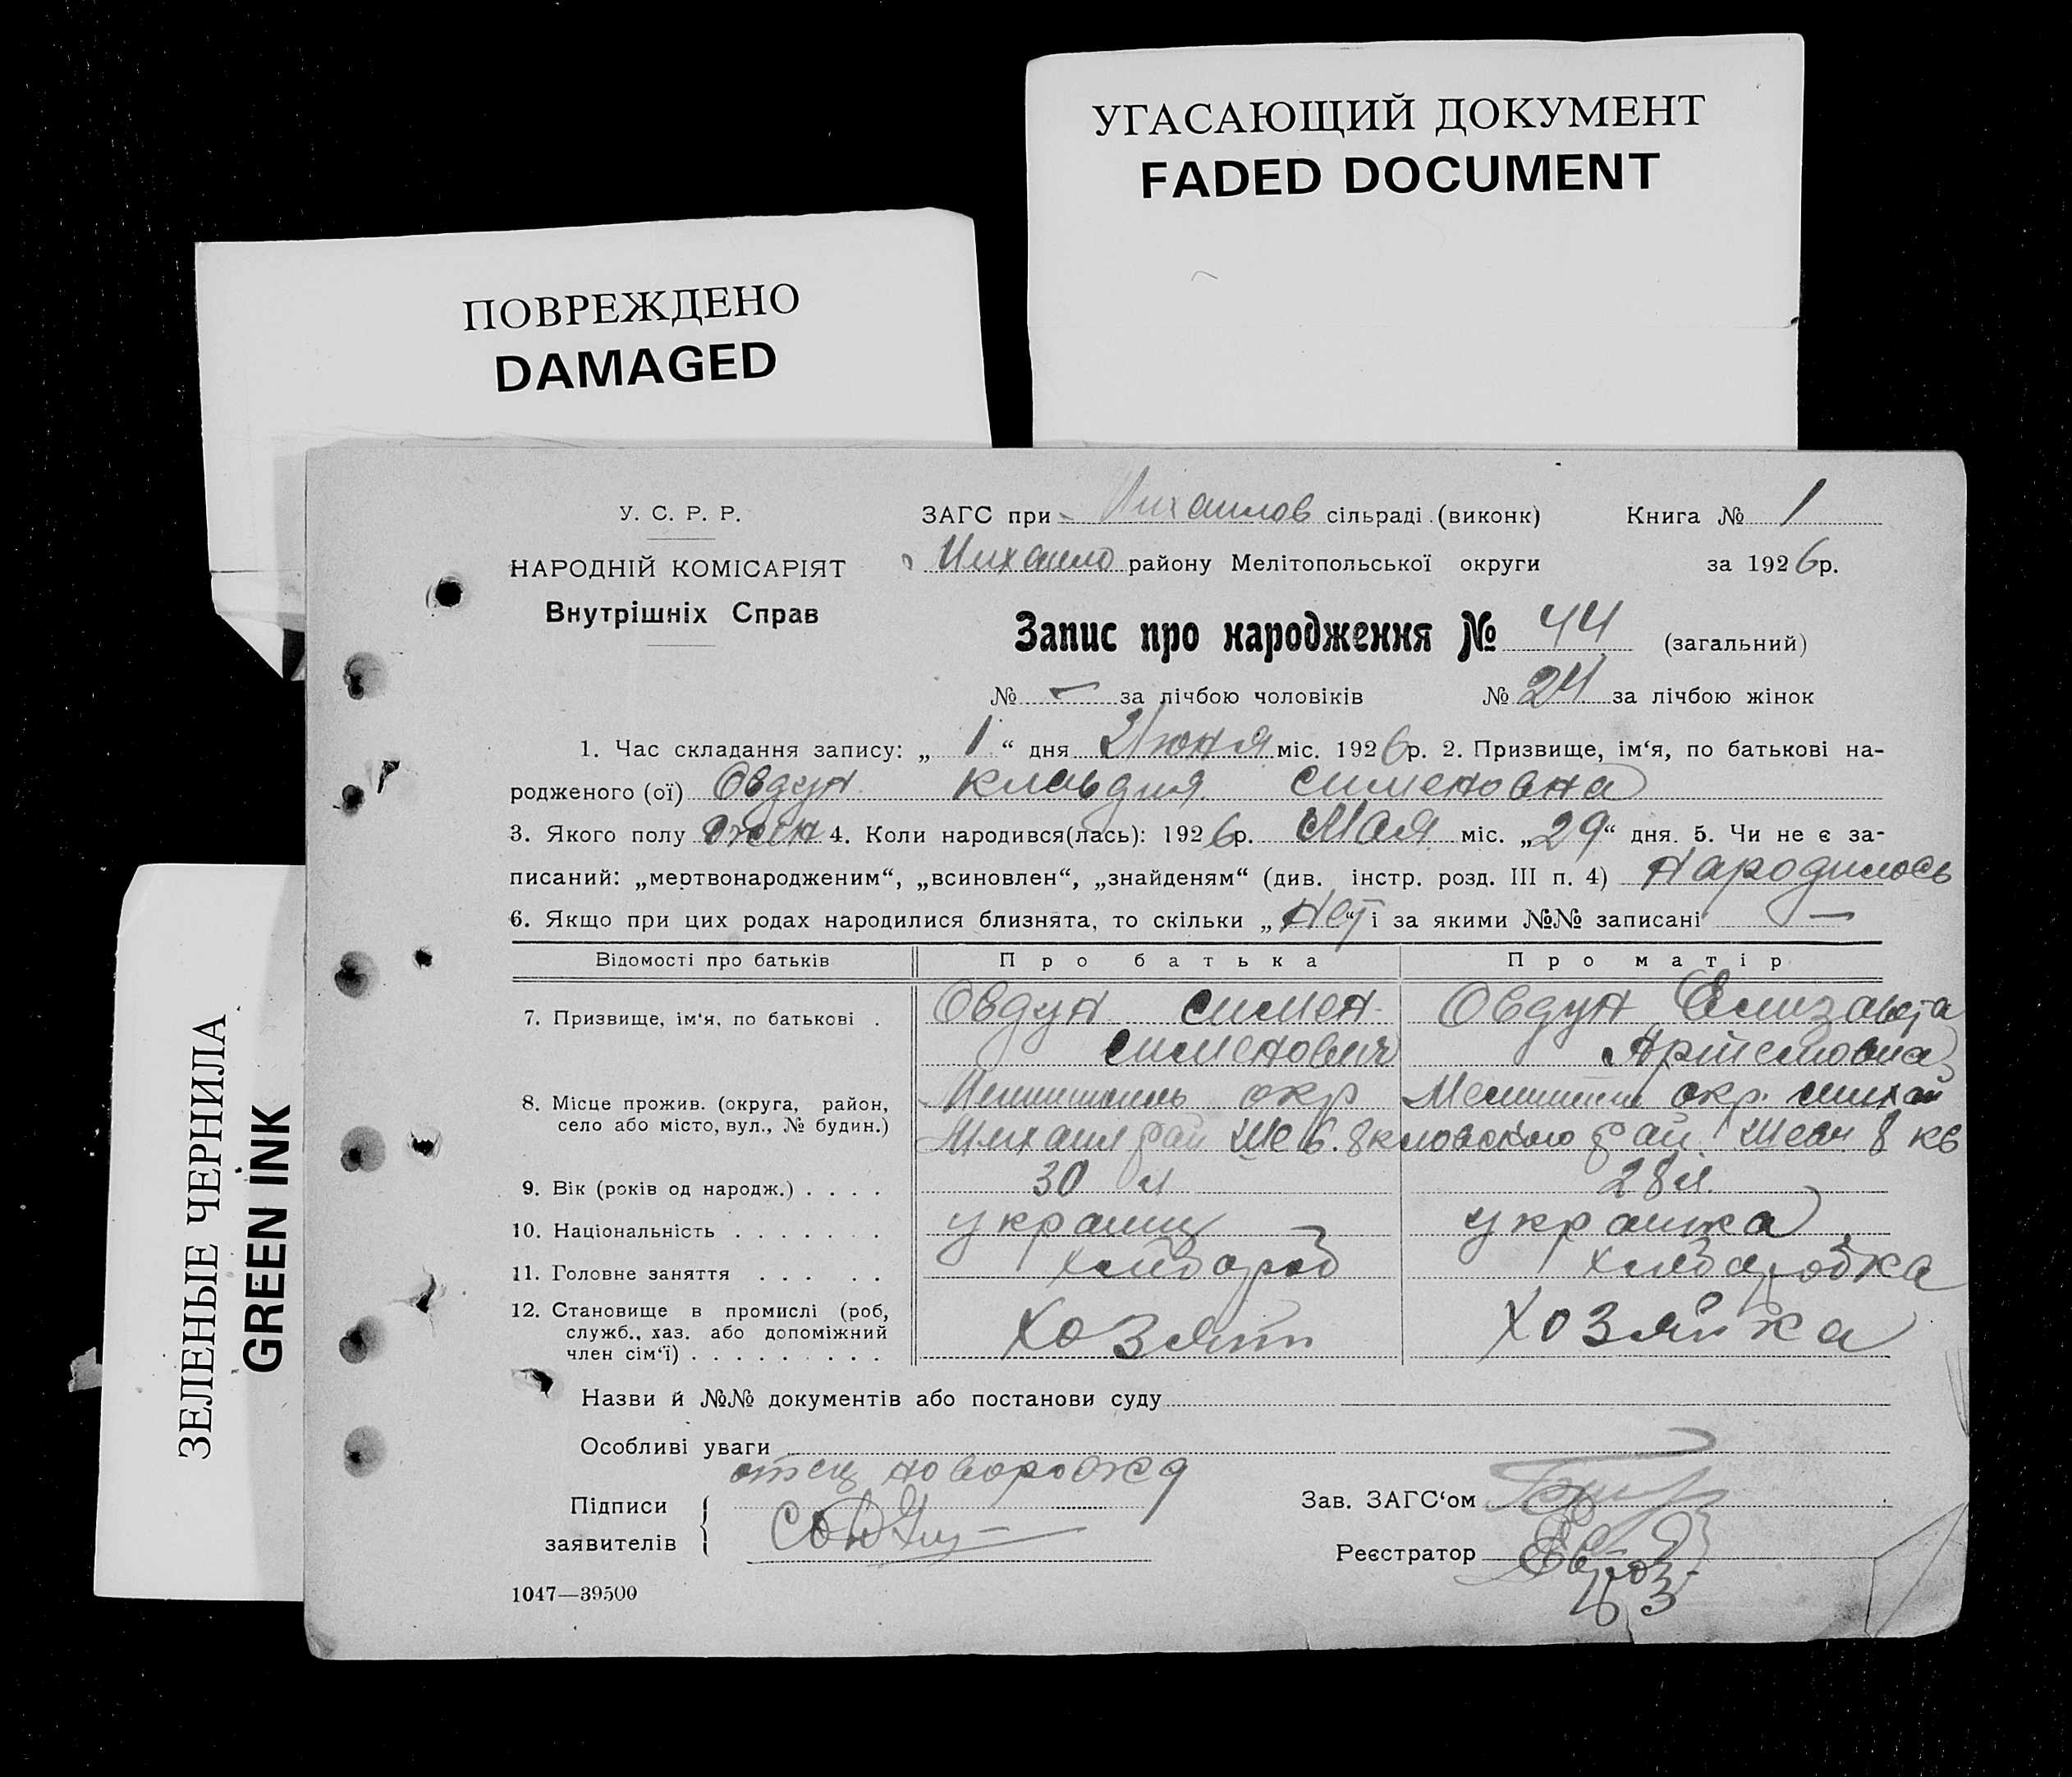 УГАСАЮЩИЙ ДОКУМЕНТ
FADED DOCUMENT
ПОВРЕЖДЕНО
DAMAGED
ЗЕЛЕНЫЕ ЧЕРНИЛА
GREEN INK
У. С. Р. Р.
НАРОДНІЙ КОМІСАРІЯТ
Внутрішніх Справ
ЗАГС при Михайлов сільраді (виконк) Книга № 1
Михайло району Мелітопольської округи за 1926р.
Запис про народження № 44 (загальний)
№ – за лічбою чоловіків № 24 за лічбою жінок
1. Час складання запису: „ 1 “ дня Июня міс. 1926р. 2. Призвище, ім‘я, по батькові на-
родженого (ої) Овдун Клавдия Сименовна
3. Якого полу жен 4. Коли народився(лась): 1926р. Мая міс. „29“ дня. 5. Чи не є за-
писаний: „мертвонародженим“, „всиновлен“, „знайденям“ (див. інстр. розд. III п. 4) Народилось
6. Якщо при цих родах народилися близнята, то скільки „Нет“ і за якими №№ записані —
Відомості про батьків Про батька Про матір
7. Призвище, ім‘я, по батькові . Овдун Симен Овдун Елизавета
Сименович Артемовна
8. Місце прожив. (округа, район, окр окр.
село або місто, вул., № будин.) Михаил рай рай
9. Вік (років од народж.) . . . . 30 л 28 л.
10. Національність . . . . . . . украинц украинка
11. Головне заняття . . . . . хлебороб хлеборобка
12. Становище в промислі (роб,
служб., хаз. або допоміжний
член сім‘ї) . . . . . . . . . хозяин хозяйка
Назви й №№ документів або постанови суду
Особливі уваги
отец новорожд
Підписи
заявителів
Зав. ЗАГС‘ом
Реєстратор
1047—39500